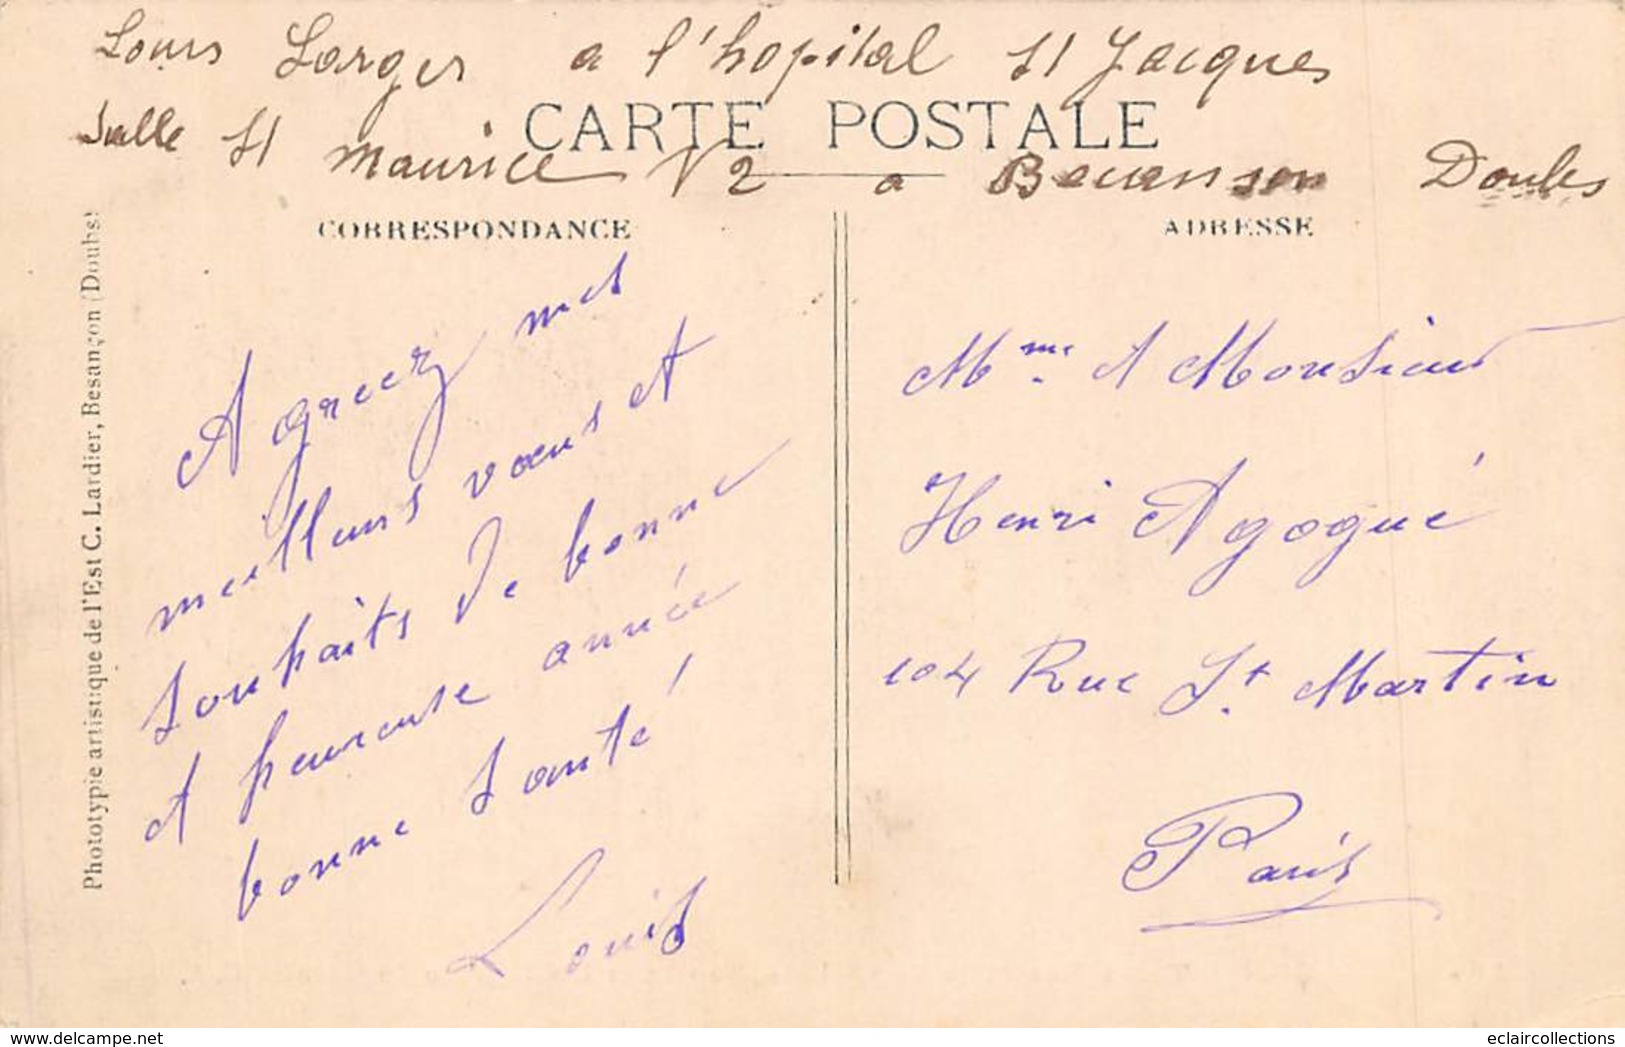 Louis Larger a l'hopital St Jacques
Salle St maurice N 2 a Besanson Doubs
CARTE POSTALE
CORRESPONDANCE
ADRESSE
Phototypie artistique de l'Est C. Lardier, Besançon (Doubs)
Agreez mes
meilleurs vœus et
souhaits de bonne
et heureuse année
bonne santé
Louis
Mme et Monsieur
Henri Agogué
104 Rue St Martin
Paris
eclaircollections